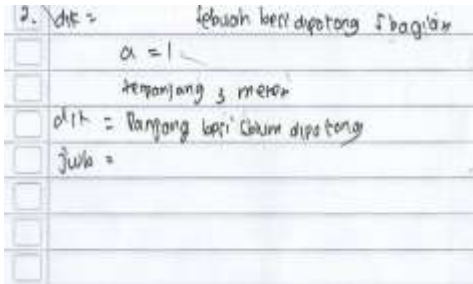 2. dik = Sebuah besi dipotong 5 bagian
a = 1
terpanjang 3 meter
dit = Panjang besi sblum dipotong
Jwb =